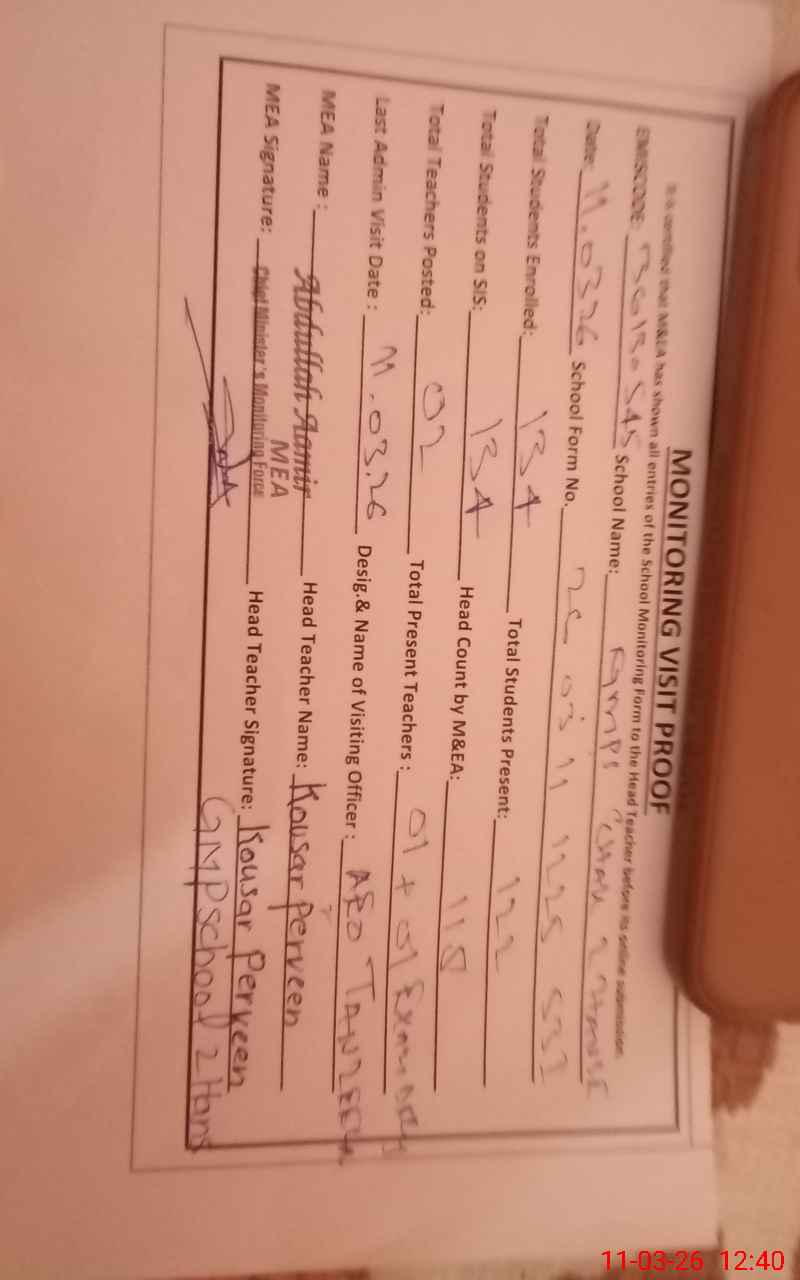 MONITORING VISIT PROOF
It is certified that M&EA has shown all entries of the School Monitoring Form to the Head Teacher before its online submission
EMISCODE: School Name:
Date: 11.03.26 School Form No.
Total Students Enrolled: 134 Total Students Present: 122
Total Students on SIS: 134 Head Count by M&EA: 118
Total Teachers Posted: 02 Total Present Teachers: 01 + 01
Last Admin Visit Date : 11.03.26 Desig.& Name of Visiting Officer : AEO
MEA Name : Abdullah Aamir Head Teacher Name: Kousar Perveen
MEA
MEA Signature: Chief Minister's Monitoring Force Head Teacher Signature: Kousar Perveen
GMPSchool 2 Hans
11-03-26 12:40